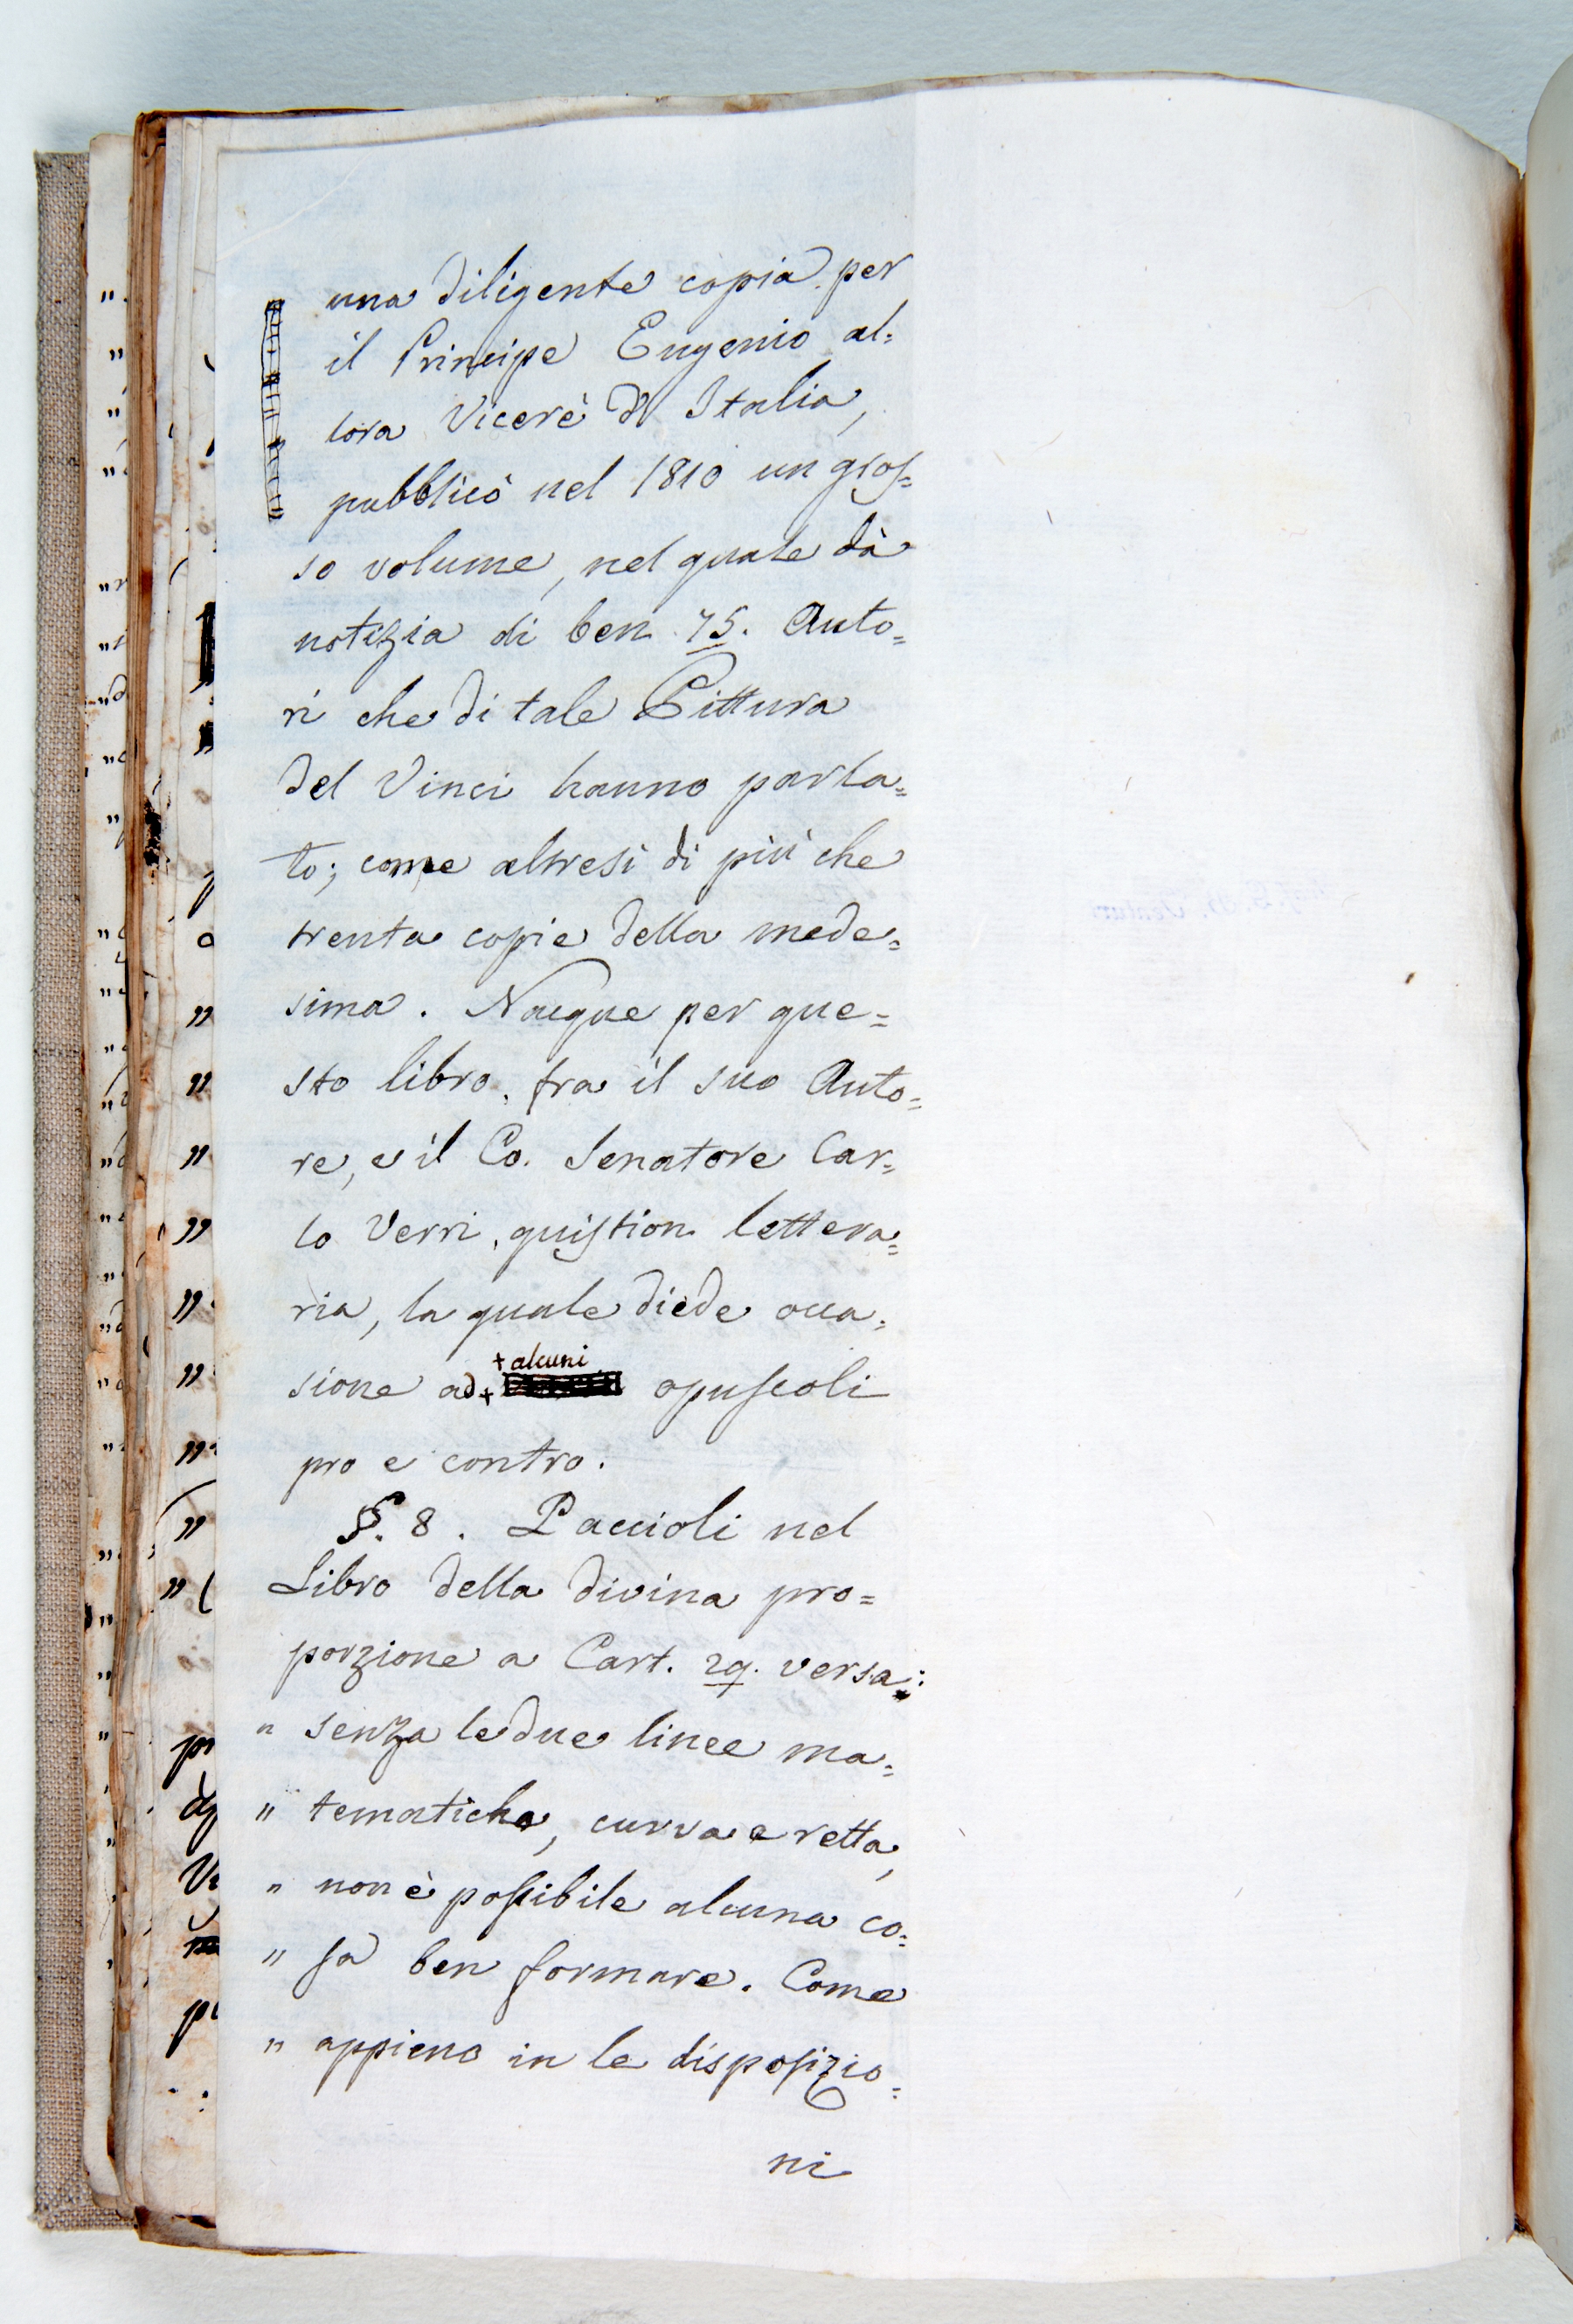 una diligente copia per
il Principe Eugenio al=
lora Vicerè d'Italia,
pubblicò nel 1810 un gros=
so volume, nel quale dà
notizia di ben 75. Auto=
ri che di tale Pittura
del Vinci hanno parla=
to; come altresì di più che
trenta copie della mede=
sima. Nacque per que=
sto libro, fra il suo Auto=
re, e il Co. Senatore Car=
lo Verri, quistion lettera=
ria, la quale diede occa=
+ alcuni
sione ad + opuscoli
pro e contro.
§. 8. Paccioli nel
Libro della divina pro=
porzione a Cart. 29. versa:
" senza le due linee ma=
" tematiche, curva e retta,
" non è possibile alcuna co=
" sa ben formare. Come
" appieno in le disposizio=
ni